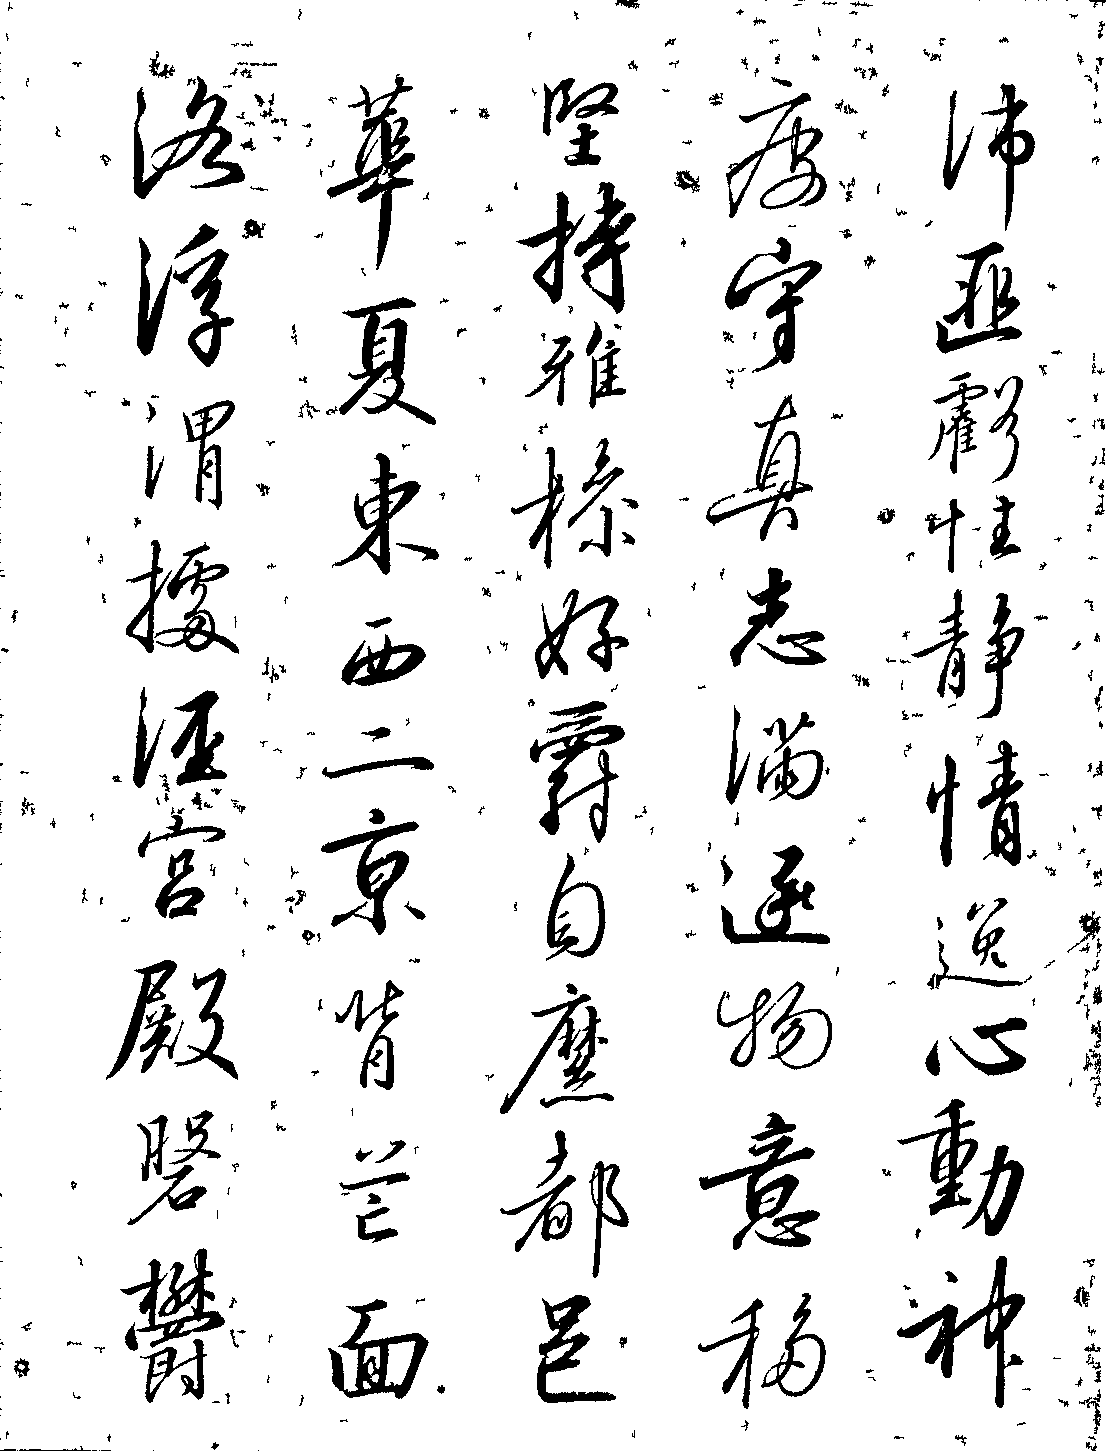 沛匪虧性静情逸心動神
疲守真志滿逐物意移
堅持雅操好爵自縻都邑
華夏東西二京背芒面
洛浮渭據涇宮殿磐鬱